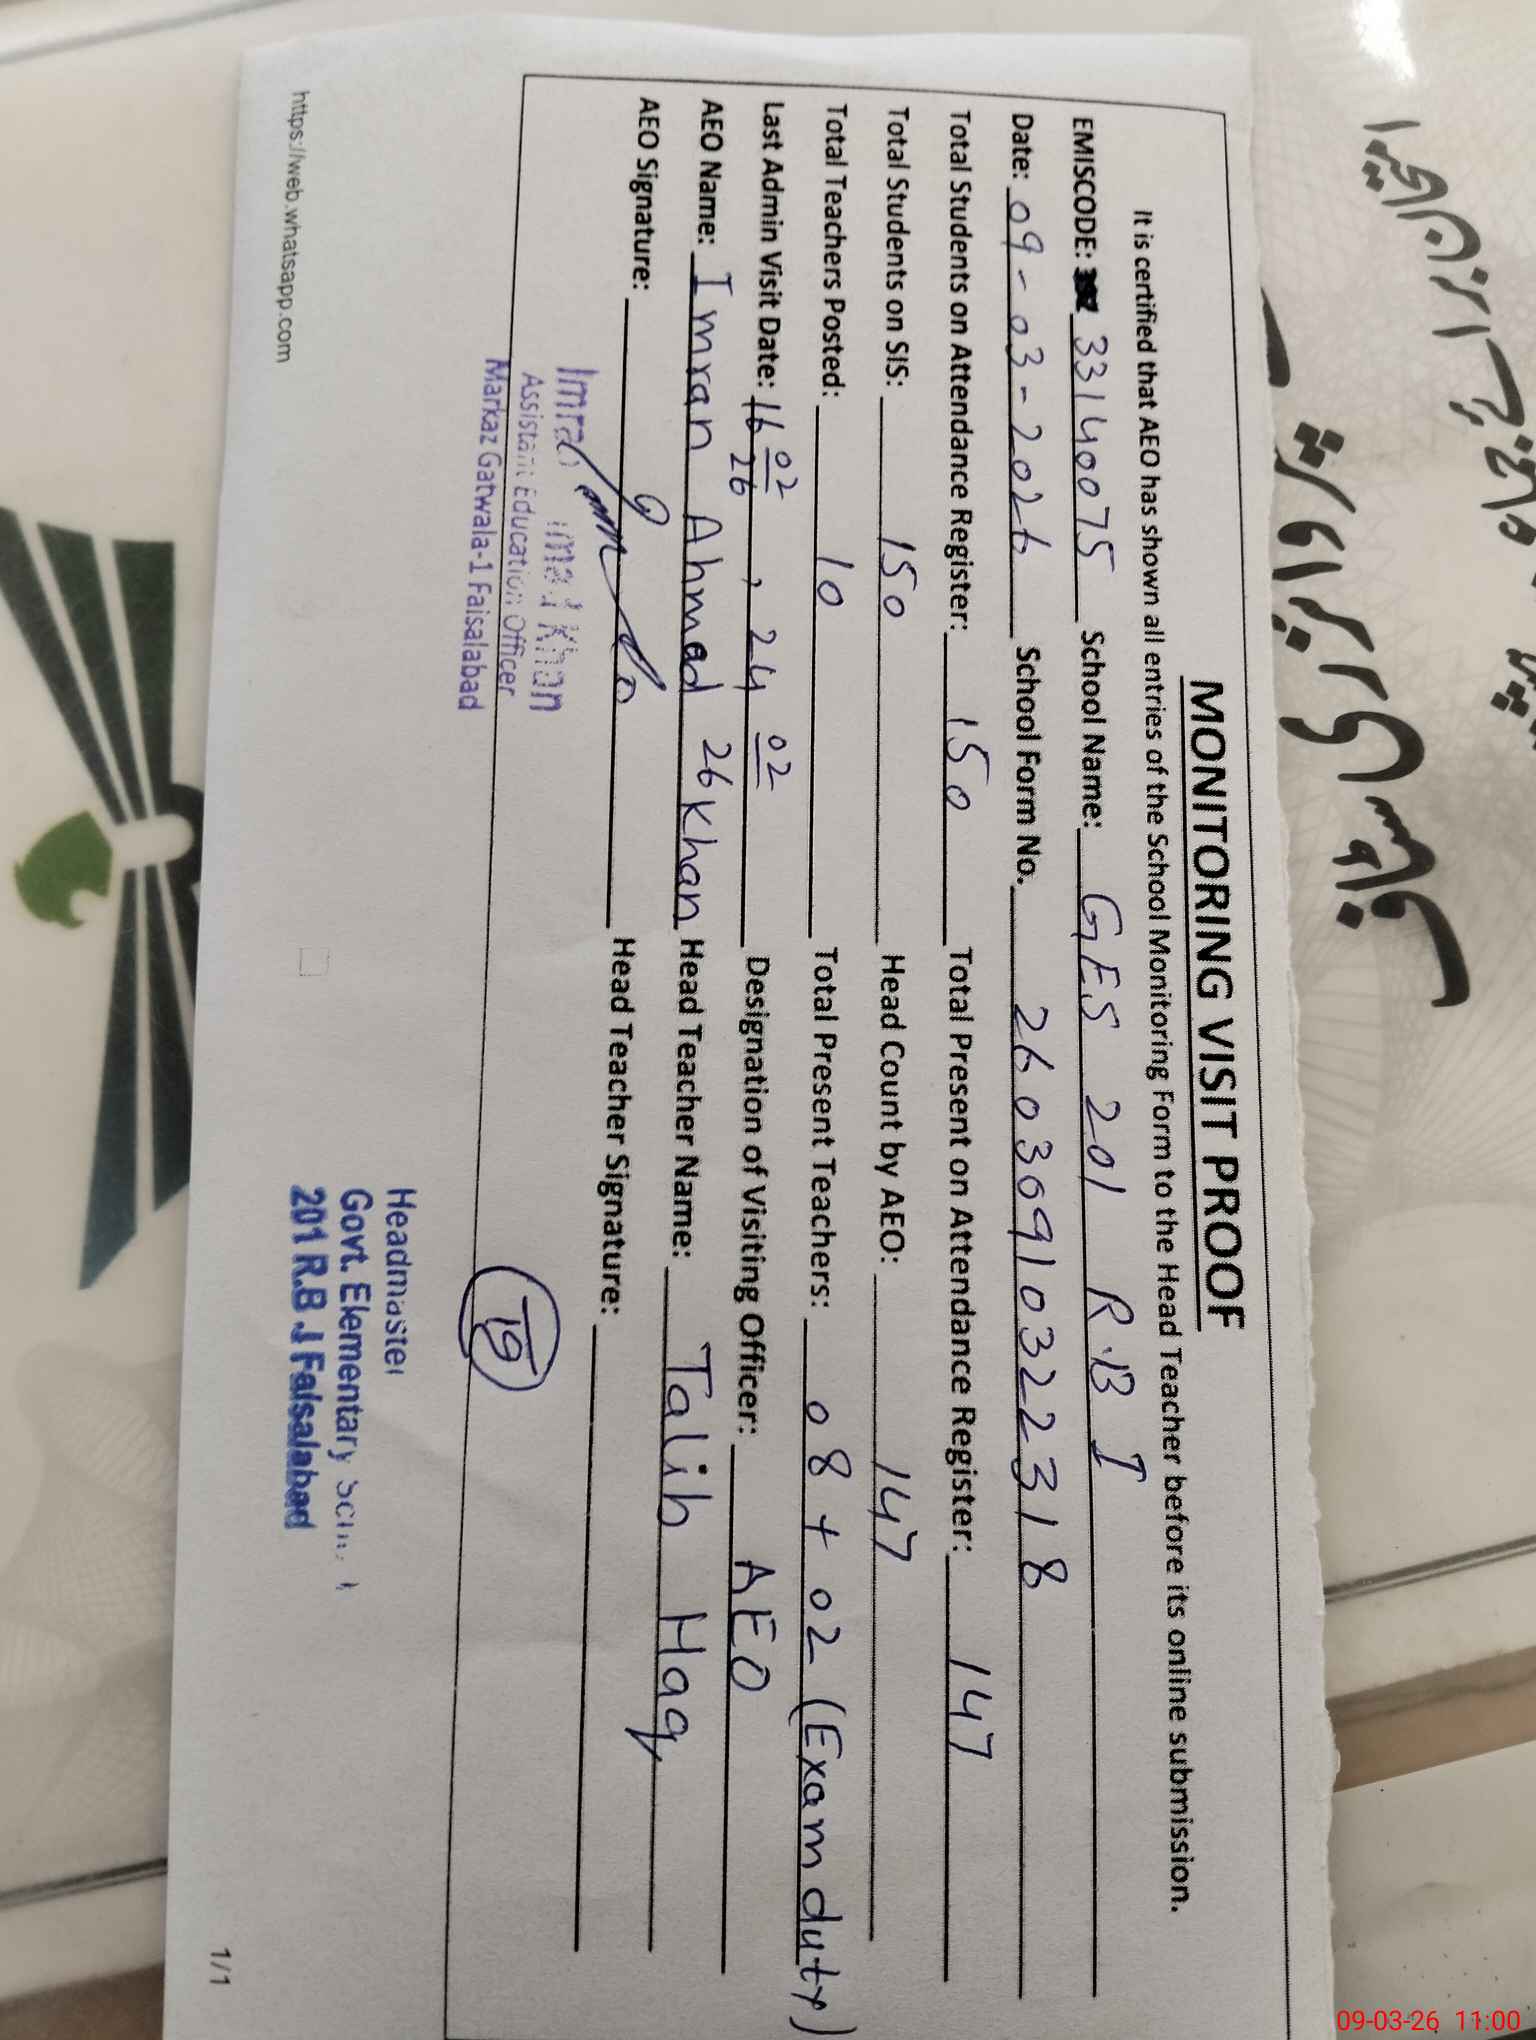 MONITORING VISIT PROOF
It is certified that AEO has shown all entries of the School Monitoring Form to the Head Teacher before its online submission.
EMISCODE: 33140075 School Name: GES 201 R.B I
Date: 09-03-2026 School Form No. 26030910322318
Total Students on Attendance Register: 150 Total Present on Attendance Register: 147
Total Students on SIS: 150 Head Count by AEO: 147
Total Teachers Posted: 10 Total Present Teachers: 08 + 02 (Exam duty)
Last Admin Visit Date: 16 02 26 , 24 02 26 Designation of Visiting Officer: AEO
AEO Name: Imran Ahmad Khan Head Teacher Name: Talib Haq
AEO Signature: Head Teacher Signature:
Khan
Assistant Education Officer
Markaz Gatwala-1 Faisalabad
Headmaster
Govt. Elementary
201 R.B J Faisalabad
https://web.whatsapp.com
1/1
09-03-26 11:00